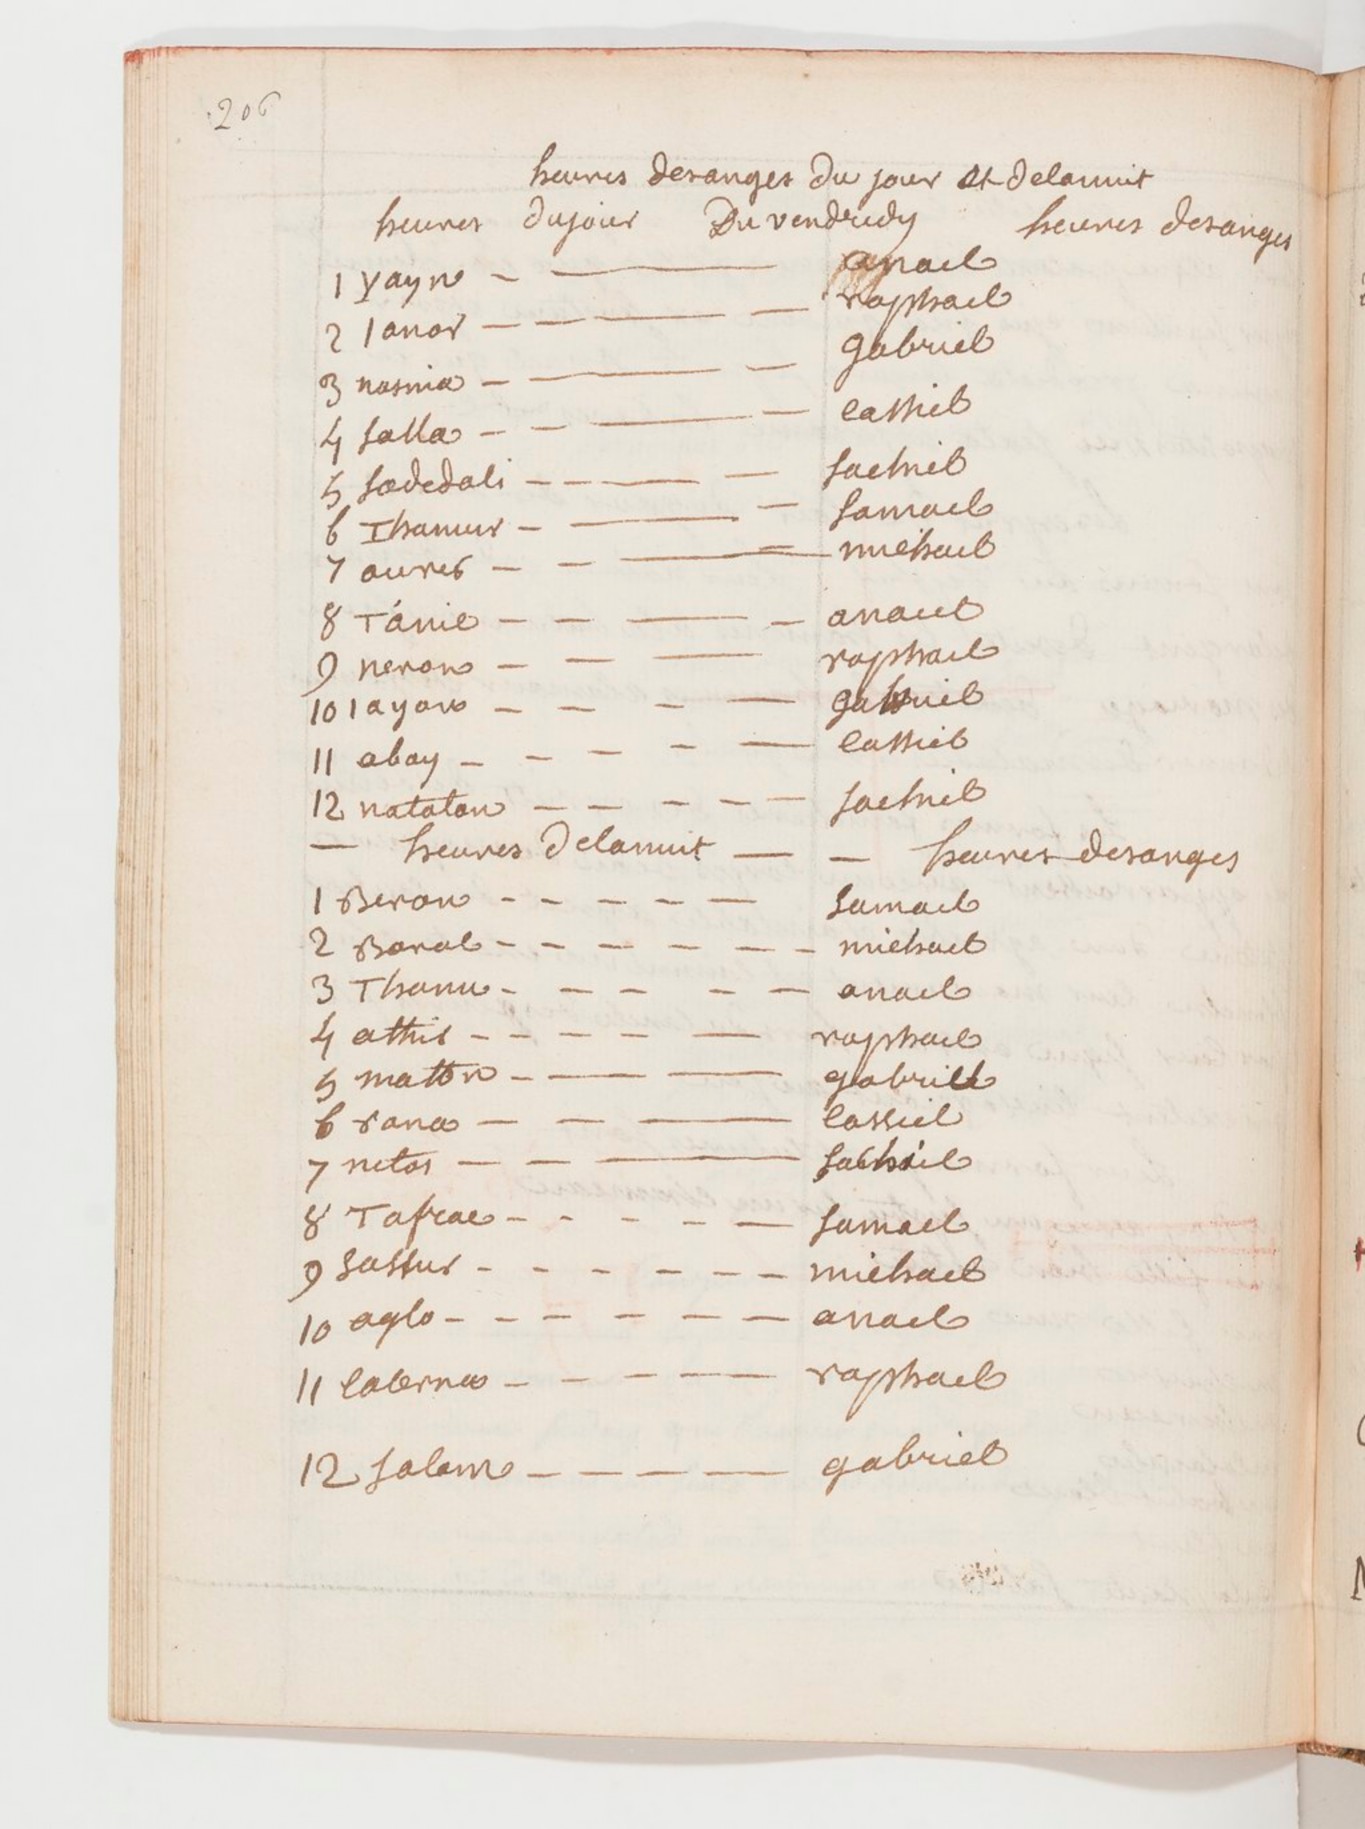 206
heures des anges du jour et de la nuit
heures du jour Du vendredy heures des anges
1 yayn - — anael
2 Janor - - — - raphael
3 nasnia - — - gabriel
4 salla - - — - cassiel
5 sadedali - - — - sachiel
6 Thamur - — - samael
7 oures - - — - michael
8 Tánie - - — - anael
9 neron - - — raphael
10 Jayon - - - — gabriel
11 abay - - - - — cassiel
12 natalon - - - - - sachiel
— heures de la nuit — - heures des anges
1 Beron - - - - - samael
2 Barol - - - - - - michael
3 Thanu - - - - - anael
4 athis - - - - - — raphael
5 maton - — — gabriel
6 rana - - — cassiel
7 netos - - — sachiel
8 Tafrae - - - - - samael
9 sassur - - - - - - michael
10 aglo - - - - - - anael
11 calerna - - - - — raphael
12 salam - - - - — gabriel